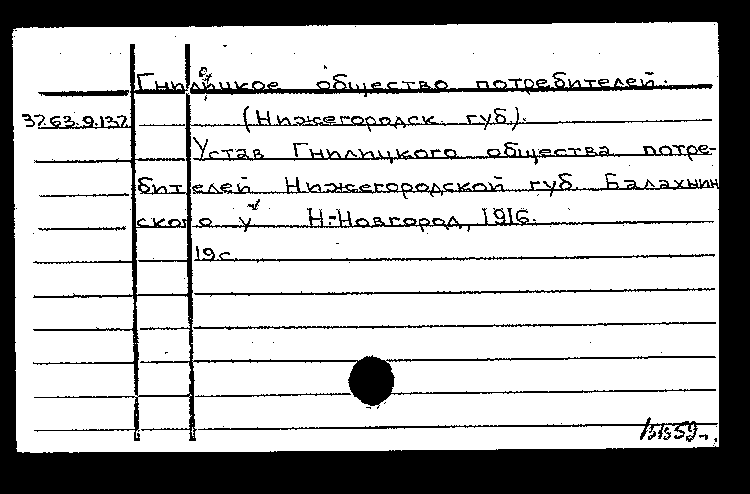 Гнилицкое общество потребителей.
3263.9.132 (Нижегородск. губ.).
Устав Гнилицкого общества потре-
бителей Нижегородской губ. Балахнин
ского у. Н-Новгород, 1916.
19 с.